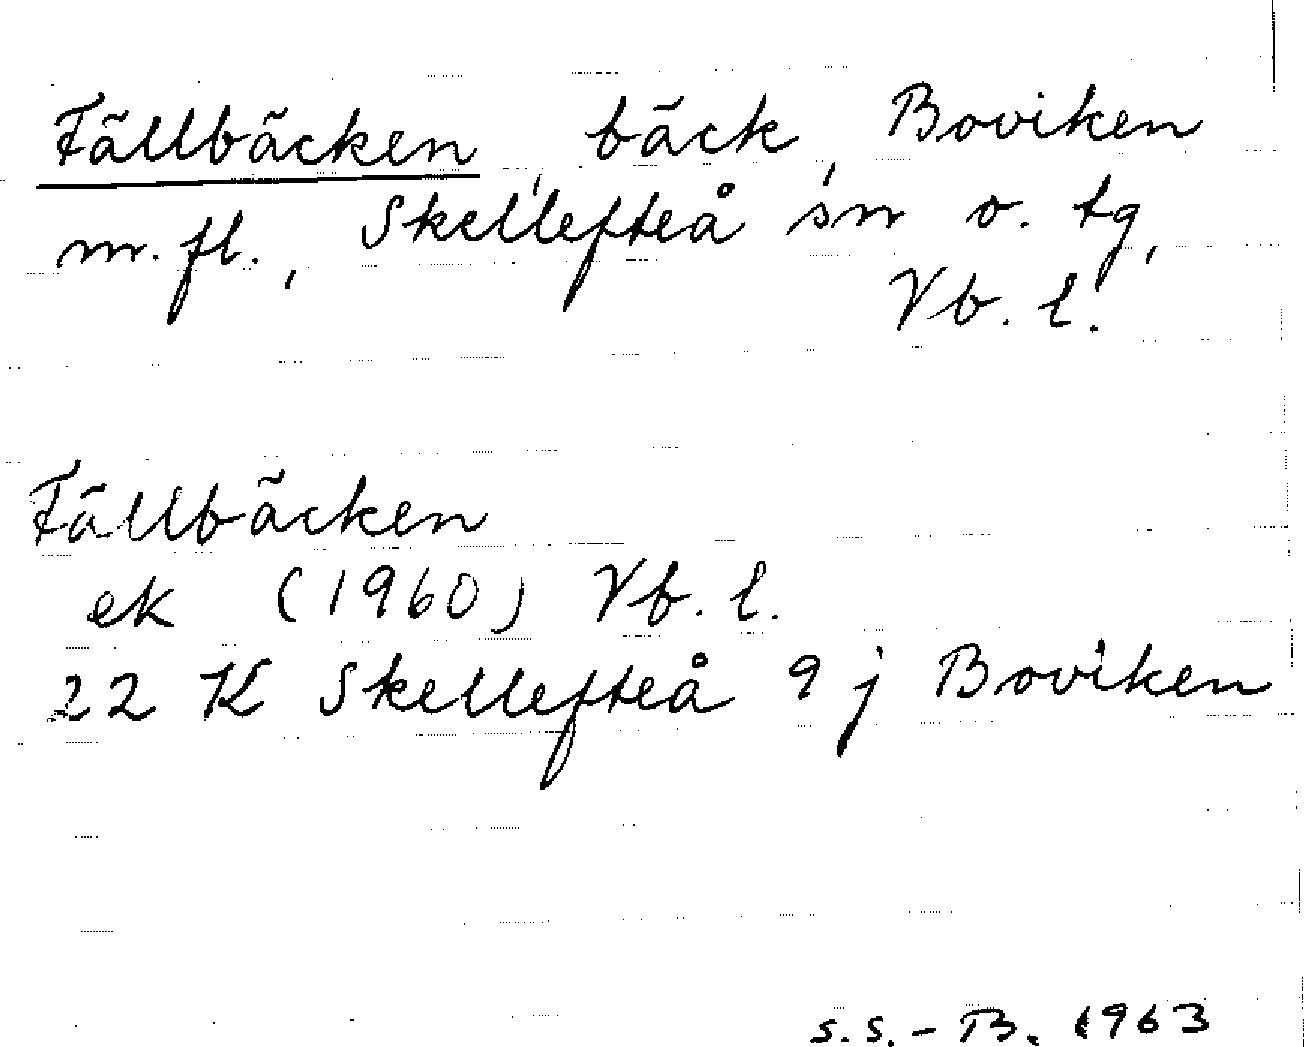 Fällbäcken, bäck, Boviken
m.fl., Skellefteå sn o. tg,
Vb. l.
Fällbäcken
ek (1960) Vb. l.
22 K Skellefteå 9 j Boviken
S.S.-B. 1963